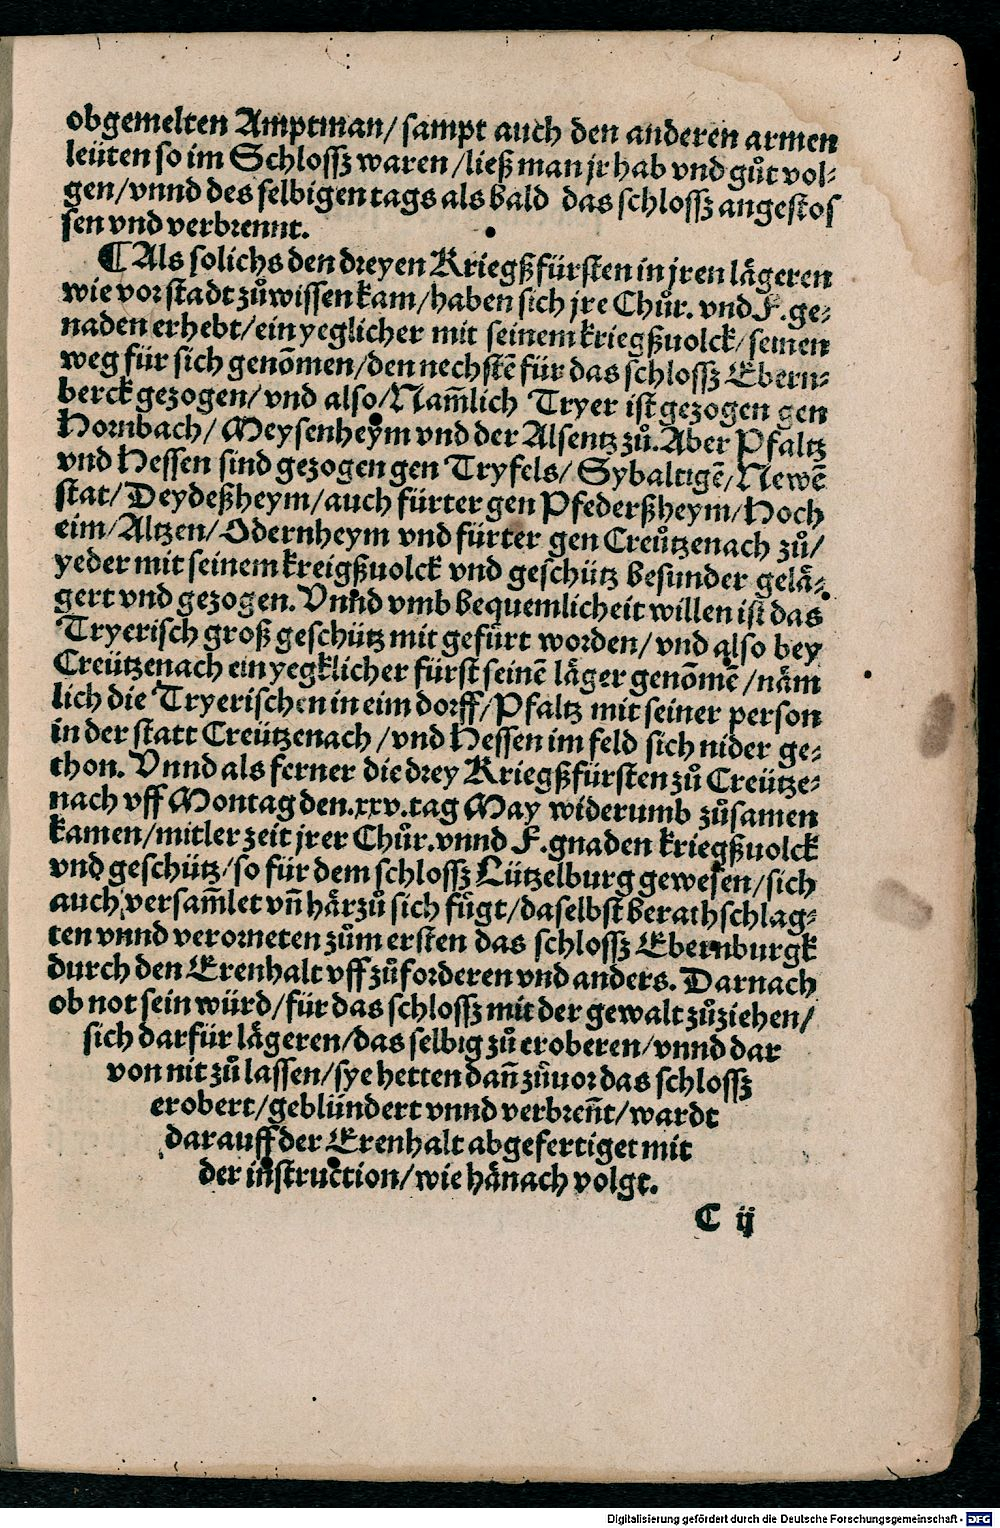 obgemelten Amptman/ sampt auch den anderen armen
leüten so im Schlossz waren /ließ man jr hab vnd gůt vol⸗
gen/vnnd des selbigen tags als bald das schlossz angestos
sen vnd verbrennt.
¶ Als solichs den dreyen Kriegßfürsten in jren lägeren
wie vor stadt zůwissen kam/haben sich jre Chůr. vnd F. ge⸗
naden erhebt/ein yeglicher mit seinem kriegßuolck/ seinen
weg für sich genōmen/den nechstē für das schlossz Ebern⸗
berck gezogen/ vnd also/Nam̄lich Tryer ist gezogen gen
Hornbach/ Meysenheym vnd der Alsentz zů. Aber Pfaltz
vnd Hessen sind gezogen gen Tryfels/ Sybaltigē/ Newē
stat/ Deydeßheym/ auch fürter gen Pfederßheym/ Hoch
eim/ Altzen/ Odernheym vnd fürter gen Creützenach zů/
yeder mit seinem kreigßuolck vnd geschütz besunder gelä⸗
gert vnd gezogen. Vnnd vmb bequemlicheit willen ist das
Tryerisch groß geschütz mit gefürt worden/ vnd also bey
Creützenach ein yegklicher fürst seinē läger genōmē /näm
lich die Tryerischen in eim dorff/ Pfaltz mit seiner person
in der statt Creützenach /vnd Hessen im feld sich nider ge⸗
thon. Vnnd als ferner die drey Kriegßfürsten zů Creütze⸗
nach vff Montag den.xxv.tag May widerumb zůsamen
kamen/mitler zeit jrer Chůr.vnnd F.gnaden kriegßuolck
vnd geschütz/so für dem schlossz Lützelburg gewesen/sich
auch versam̄let vn̄ härzů sich fůgt/daselbst berathschlag⸗
ten vnnd verorneten zům ersten das schlossz Ebernburgk
durch den Erenhalt vff zůforderen vnd anders. Darnach
ob not sein würd/für das schlossz mit der gewalt zůziehen/
sich darfür lägeren/das selbig zů eroberen/vnnd dar
von nit zů lassen/sye hetten dan̄ zůuor das schlossz
erobert/geblündert vnnd verbren̄t/wardt
darauff der Erenhalt abgefertiget mit
der instruction/wie hänach volgt.
C ij
Digitalisierung gefördert durch die Deutsche Forschungsgemeinschaft - DFG